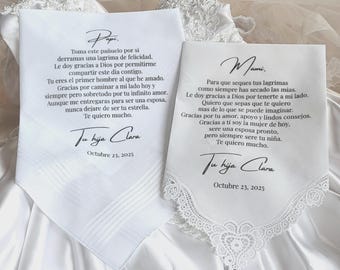 Papi,
Toma este pañuelo por si
derramas una lagrima de felicidad.
Le doy gracias a Dios por permitirme
compartir este dia contigo.
Tu eres el primer hombre al que he amado.
Gracias por caminar a mi lado hoy y
siempre pero sobretodo por tu infinito amor.
Aunque me entregaras para ser una esposa,
nunca dejare de ser tu estrella.
Te quiero mucho.
Tu hija Clara
Octubre 23, 2025
Mami,
Para que seques tus lagrimas
como siempre has secado las mias.
Le doy gracias a Dios por tenerte a mi lado.
Quiero que sepas que te quiero
mas de lo que puedas imaginar.
Gracias por tu amor, apoyo y lindos consejos.
Gracias a ti soy la mujer de hoy,
sere una esposa pronto,
pero siempre sere tu niña.
Te quiero mucho.
Tu hija Clara
Octubre 23, 2025